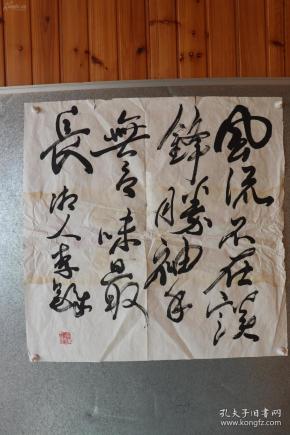 風流不在談
鋒勝袖手
無言味最
長 湘人李鐸
孔夫子旧书网